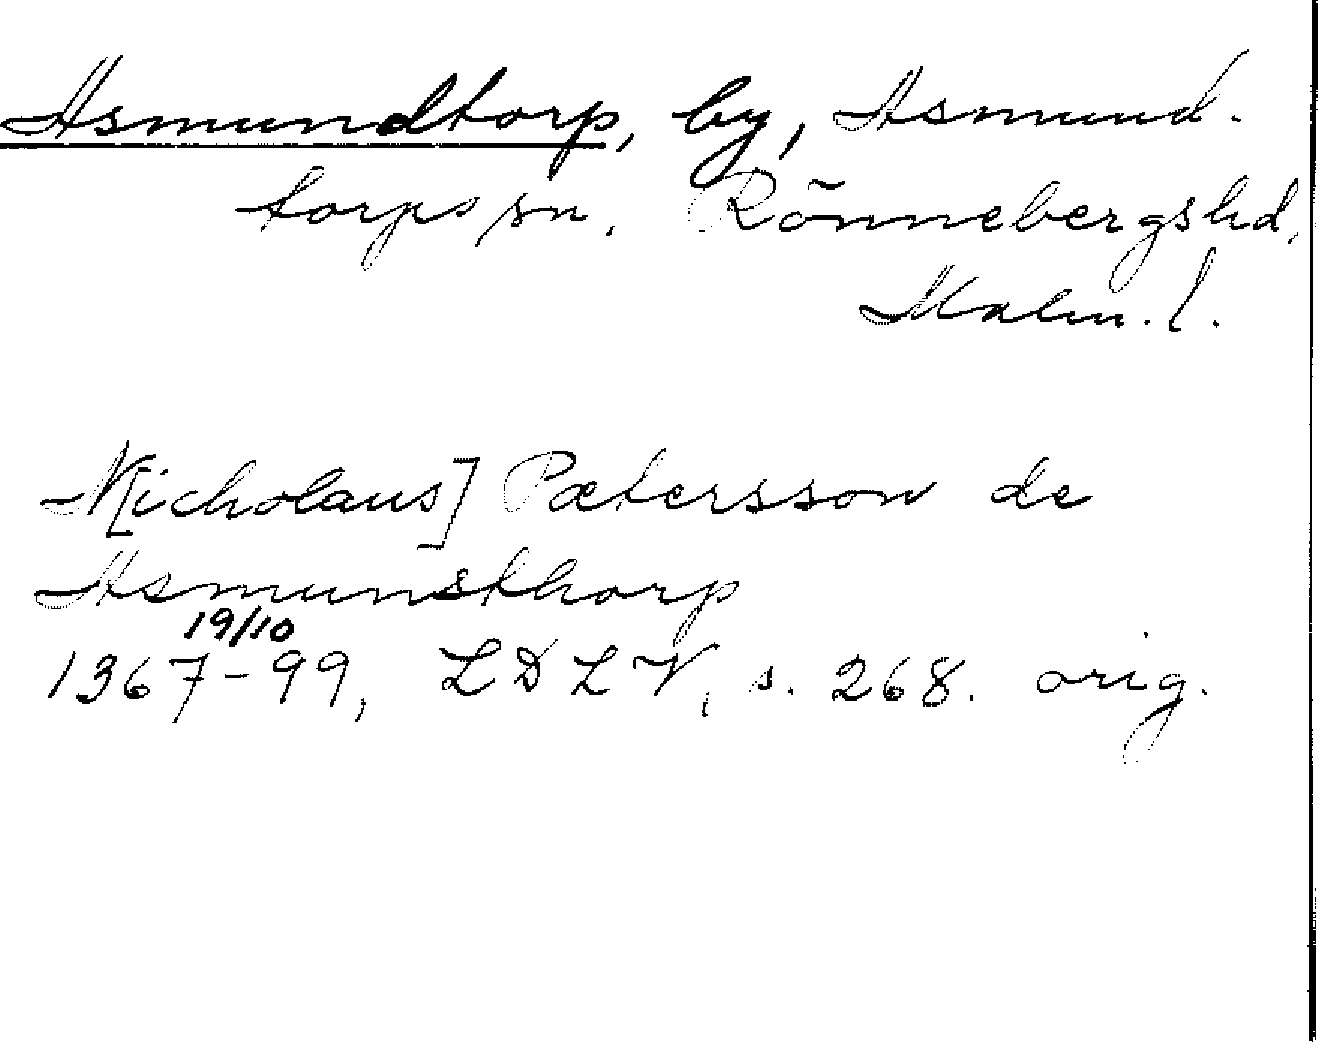 Asmundtorp, by, Asmund-
torps sn. Rönnebergs hd,
Malm. l.
N[icholaus] Pætersson de
Asmunsthorp
19/10
1367-99, LDLV, s. 268. orig.